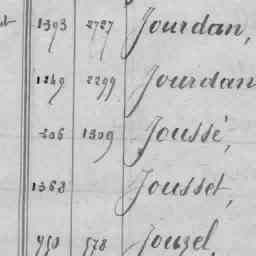 1393 2727 Jourdan,
1249 2299 Jourdan
206 1309 Joussé,
1368 Jousset,
950 578 Jouzel,